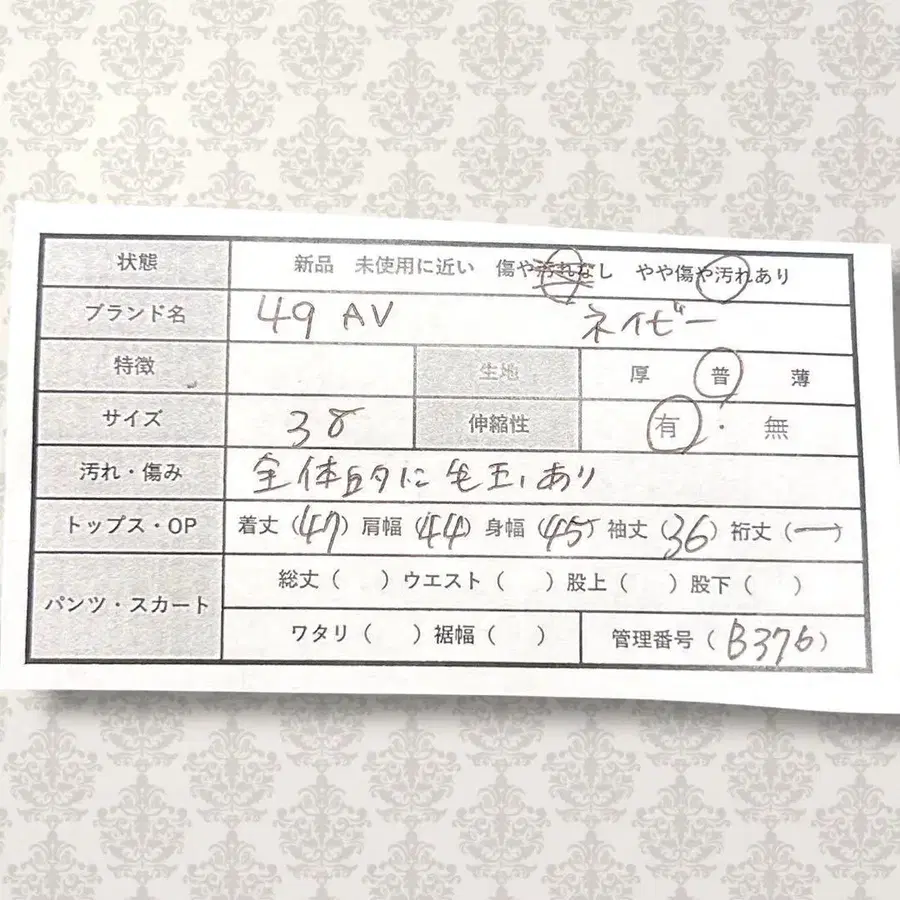 状態 新品 未使用に近い 傷や汚れなし やや傷や汚れあり
ブランド名 49AV ネイビー
特徴 生地 厚 普 薄
サイズ 38 伸縮性 有・無
汚れ・傷み 全体的に毛玉あり
トップス・OP 着丈(47) 肩幅(44) 身幅(45) 袖丈(36) 裄丈(ー)
パンツ・スカート 総丈( ) ウエスト( ) 股上( ) 股下( )
ワタリ( ) 裾幅( ) 管理番号(B376)